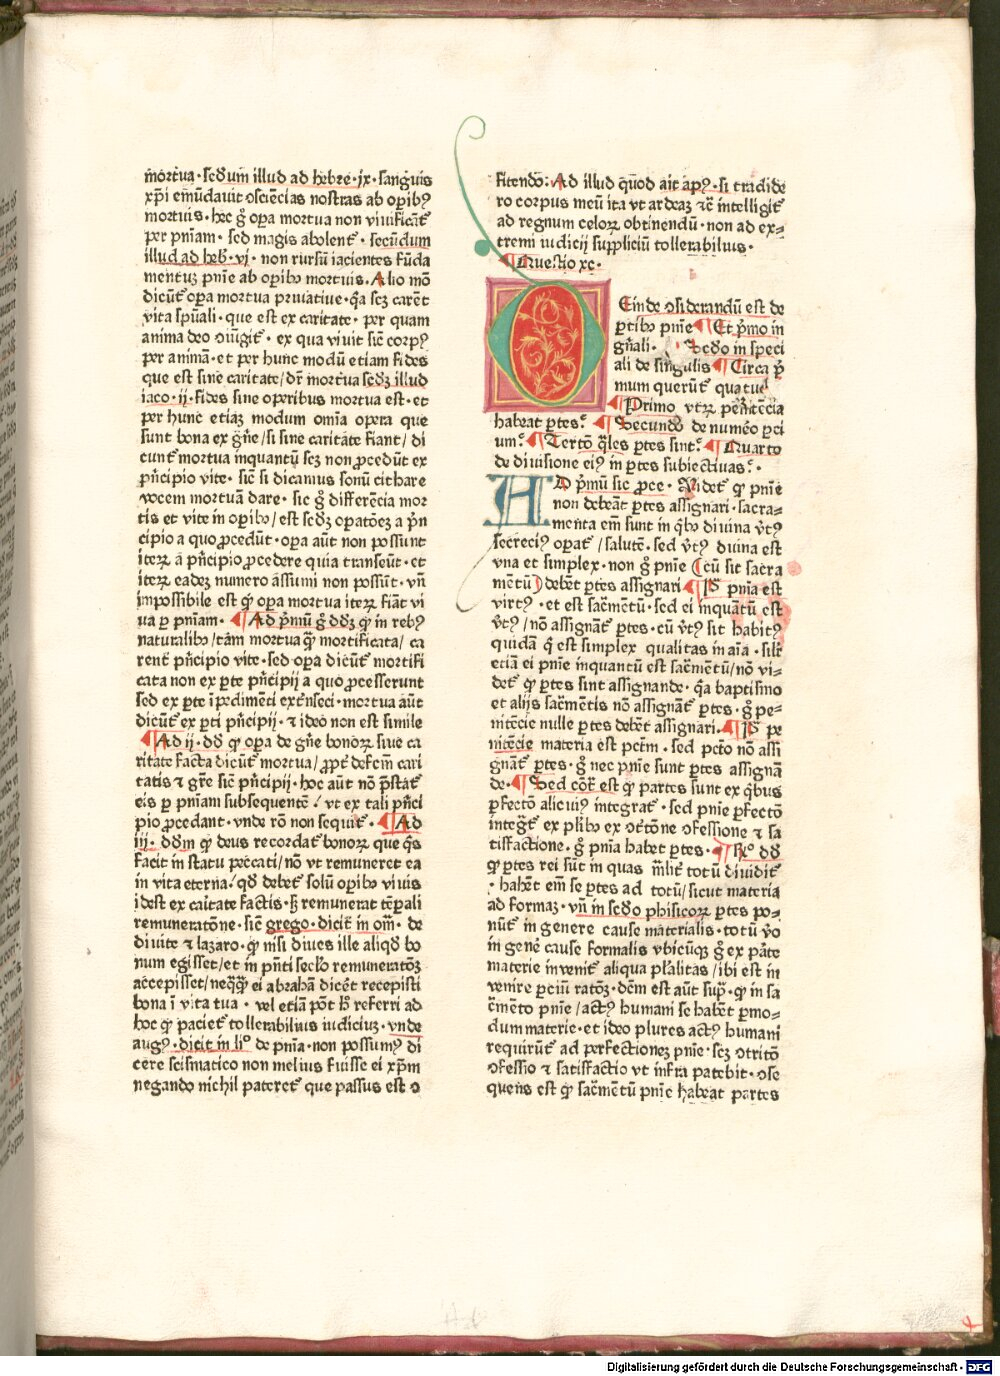 mortua · sedum illud ad hebre · ix · sanguis
xp̄i emūdauit ↄsciēcias nostras ab oꝑibꝰ
mortuis · hec g̊ oꝑa mortua non viuificāt᷑
per pniam · sed magis abolent᷑ · secūdum
illud ad heb · vi · non rursū iacientes fūda
mentuꝫ pnie ab oꝑibꝰ mortuis · Alio mō
dicūt᷑ oꝑa mortua pͥuatiue · q̄a scꝫ carēt
vita spūali · que est ex caritate · per quam
anima deo ↄiūgit᷑ · ex qua viuit sic̄ corpꝰ
per animā · et per hunc modū etiam fides
que est sine caritate / dr̄ mortua scd̄ꝫ illud
iaco · ij · fides sine operibus mortua est · et
per hunc etiaꝫ modum omīa opera que
sunt bona ex gn̄e / si sine caritate fiant / di
cunt᷑ mortua inquantū scꝫ non ꝓcedūt ex
pn̄cipio vite · sic̄ si dicamus sonū cithare
vocem mortuā dare · sic g̊ differēcia mor
tis et vite in oꝑibꝰ / est scd̄ꝫ oꝑatōeꝫ a pn̄
cipio a quo ꝓcedūt · oꝑa aūt non possunt
iteꝝ a pn̄cipio ꝓcedere quia transeūt · et
iteꝝ eadeꝫ numero assumi non possūt · vn̄
impossibile est ꝙ oꝑa mortua iteꝝ fiāt vi
ua ꝑ pniam · ¶ Ad pͥmū g̊ dd̄ꝫ ꝙ in rebꝰ
naturalibꝰ / tām mortua q̄ꝫ mortificata / ca
rent pn̄cipio vite · sed oꝑa dicūt᷑ mortifi
cata non ex ꝑte pn̄cipij a quo ꝓcesserunt
sed ex ꝑte īpedimēti extͥnseci · mortua aūt
dicūt᷑ ex ꝑti pn̄cipij · ⁊ ideo non est simile
¶ Ad ij · dd̄ ꝙ oꝑa de gn̄e bonoꝝ siue ca
ritate facta dicūt᷑ mortua / ꝓpt᷑ defcm̄ cari
tatis ⁊ gr̄e sic̄ pn̄cipij · hoc aūt nō p̄stat᷑
eis ꝑ pniam subsequentē / vt ex tali pn̄ci
pio ꝓcedant · vnde rō non sequit᷑ · ¶ Ad
iij · dd̄m ꝙ deus recordat᷑ bonoꝝ que q̊s
facit in statu peccati / nō vt remuneret ea
in vita eterna / qd̄ debet᷑ solū oꝑibꝰ viuis
idest ex caitate factis · sꝫ remunerat tēꝑali
remuneratōne · sic̄ grego · dicit in om̄ · de
diuite ⁊ lazaro · ꝙ nisi diues ille aliqd̄ bo
num egisset / et in pn̄ti sec̄lo remuneratōꝫ
accepisset / neq̄q̄ꝫ ei abrahā dicēt recepisti
bona ī vita tua · vel etiā pōt hͦ referri ad
hoc ꝙ paciet᷑ tollerabilius iudiciuꝫ · vnde
augꝰ · dicit in liͦ de pnia · non possumꝰ di
cere scismatico non melius fuisse ei xp̄m
negando nichil pateret᷑ que passus est ↄ
fitendo: Ad illud quod ait apꝰ · si tradide
ro corpus meū ita vt ardeaꝫ ⁊c̄ intelligit᷑
ad regnum celoꝝ obtinendū · non ad ex⸗
tremi iudicij suppliciū tollerabilius ·
¶ Questio xc ·
Einde ↄsiderandū est de
ꝑtibꝰ pnie ¶ Et pͥmo in
gn̄ali · Scd̄o in speci
ali de singulis ¶ Circa pͥ
mum querūt᷑ quatuor
¶ Primo vtꝝ penitēcia
habeat ꝑtes · ¶ Secundo de numēo ꝑci
um · ¶ Tertō q̄les ꝑtes sint · ¶ Quarto
de diuisione eiꝰ in ꝑtes subiectiuas ·
AD pͥmū sic ꝓce · Videt᷑ ꝙ pnie
non debeāt ꝑtes assignari · sacra⸗
menta em̄ sunt in q̄bꝰ diuina v̄tꝰ
secreciꝰ oꝑat᷑ / salutē · sed v̄tꝰ diuina est
vna et simplex · non g̊ pnie (cū sit sacra
mētū) debēt ꝑtes assignari ¶ Pͤ pnia est
virtꝰ · et est sac̄mētū · sed ei inquātū est
v̄tꝰ / nō assignāt᷑ ꝑtes · cū v̄tꝰ sit habitꝰ
quidā q̄ est simplex qualitas in aīa · sil̄r
etiā ei pnie inquantū est sac̄mētū / nō vi⸗
det᷑ ꝙ ꝑtes sint assignande · q̄a baptismo
et alijs sac̄mētis nō assignāt᷑ ꝑtes · g̊ pe⸗
nitēcie nulle ꝑtes debēt assignari · ¶ Pͤ pe
nitēcie materia est pctm̄ · sed pctō nō assi
gnāt᷑ ꝑtes · g̊ nec pnie sunt ꝑtes assignā
de · ¶ Sed cōt᷑ est ꝙ partes sunt ex q̄bus
ꝑfectō alicuiꝰ integrat᷑ · sed pnie ꝑfectō
integͣt᷑ ex pl̄ibꝰ ex ↄt᷑tōne ↄfessione ⁊ sa
tisfactione · g̊ pnia habet ꝑtes · ¶ Rͦ dd̄
ꝙ ꝑtes rei sūt in quas mͣl̄it᷑ totū diuidit᷑
· habēt em̄ se ꝑtes ad totū / sicut materia
ad formaꝫ · vn̄ in scd̄o phisicoꝝ ꝑtes po⸗
nūt᷑ in genere cause materialis · totū ꝟo
in genē cause formalis vbicūqꝫ g̊ ex pāte
materie inuenit᷑ aliqua pl̄alitas / ibi est in
uenire ꝑciū ratōꝫ · dēm est aūt supͣ · ꝙ in sa
c̄mēto pnie / actꝰ humani se habēt ꝑmo⸗
dum materie · et ideo plures actꝰ humani
requirūt᷑ ad perfectioneꝫ pnie · scꝫ ↄtritō
ↄfessio ⁊ satisfactio vt infra patebit · ↄse
quens est ꝙ sac̄mētū pnie habeat partes
Digitalisierung gefördert durch die Deutsche Forschungsgemeinschaft - DFG